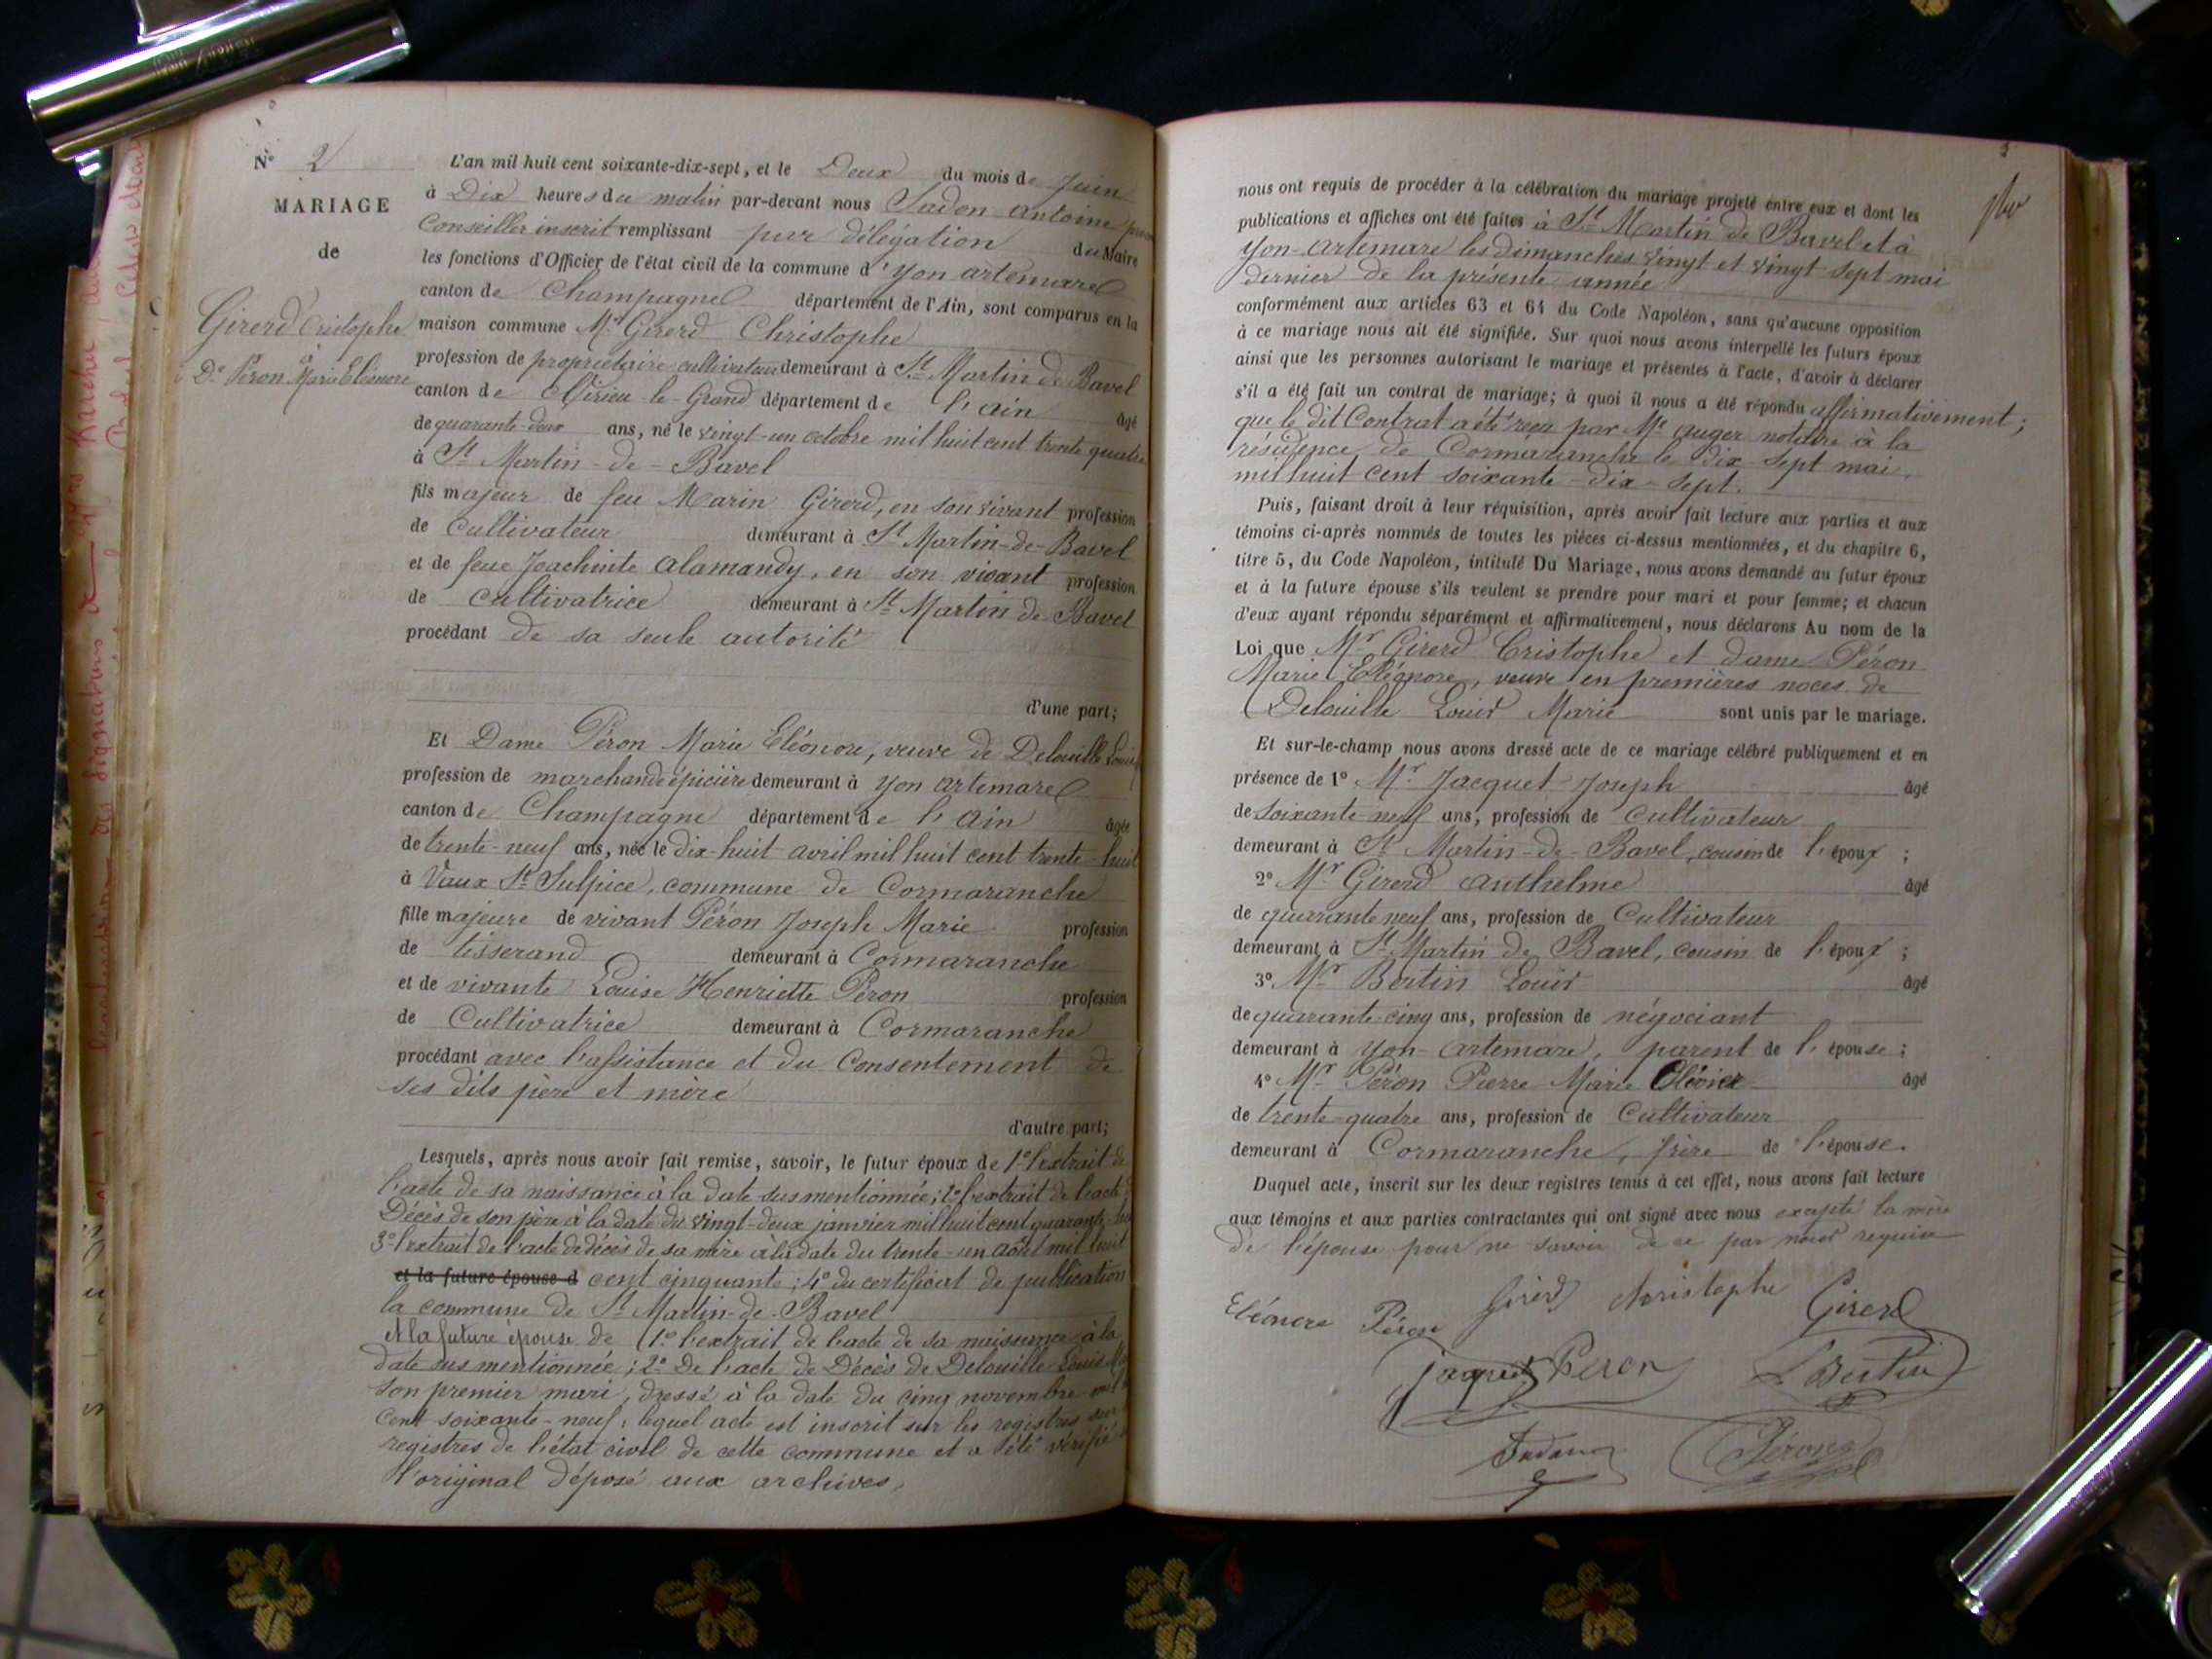 N° 2
MARIAGE
de
Girerd Cristophe
à
De Péron Marie Eléonore
L'an mil huit cent soixante-dix-sept, et le Deux du mois de Juin
à Dix heures du matin par-devant nous Sadon antoine
Conseiller inscrit remplissant par délégation du Maire
les fonctions d'Officier de l'état civil de la commune d'yon artemare
canton de Champagne département de l'Ain, sont comparus en la
maison commune Mr Girerd Christophe
profession de propriétaire cultivateur demeurant à St Martin de Bavel
canton de Virieu-le-Grand département de l'ain âgé
de quarante-deux ans, né le vingt-un octobre mil huit cent trente quatre
à St Martin-de-Bavel
fils majeur de feu Marin Girerd, en son vivant profession
de cultivateur demeurant à St Martin-de-Bavel
et de feue Joachinte alamandy, en son vivant profession
de cultivatrice demeurant à St Martin de Bavel
procédant de sa seule autorité
d'une part;
Et Dame Péron Marie Eléonore, veuve de Delouille Louis
profession de marchande épicière demeurant à yon artemare
canton de Champagne département de l'ain âgée
de trente-neuf ans, née le dix-huit avril mil huit cent trente-huit
à Vaux St Sulpice, commune de Cormaranche
fille majeure de vivant Péron Joseph Marie profession
de tisserand demeurant à Cormaranche
et de vivante Louise Henriette Péron profession
de Cultivatrice demeurant à Cormaranche
procédant avec l'assistance et du Consentement de
ses dits père et mère
d'autre part;
Lesquels, après nous avoir fait remise, savoir, le futur époux de 1° l'extrait de
l'acte de sa naissance à la date sus mentionnée; 2° l'extrait de l'acte de
Décès de son père à la date du vingt-deux janvier mil huit cent quarante
3° l'extrait de l'acte de décès de sa mère à la date du trente-un août mil huit
et la future épouse d cent cinquante; 4° du certificat de publication
la commune de St Martin-de-Bavel
et la future épouse de 1° l'extrait de l'acte de sa naissance à la
date sus mentionnée; 2° De l'acte de Décès de Delouille Louis
son premier mari, dressé à la date du cinq novembre mil
cent soixante-neuf; lequel acte est inscrit sur les registres sur
registres de l'état civil de cette commune et a été vérifié
l'original déposé aux archives,
nous ont requis de procéder à la célébration du mariage projeté entre eux et dont les
publications et affiches ont été faites à St Martin de Bavel et à
yon-artemare les dimanches vingt et vingt sept mai
dernier de la présente année
conformément aux articles 63 et 64 du Code Napoléon, sans qu'aucune opposition
à ce mariage nous ait été signifiée. Sur quoi nous avons interpellé les futurs époux
ainsi que les personnes autorisant le mariage et présentes à l'acte, d'avoir à déclarer
s'il a été fait un contrat de mariage; à quoi il nous a été répondu affirmativement;
que le dit Contrat a été reçu par Me auger notaire à la
résidence de Cormaranche le dix-sept mai
mil huit cent soixante-dix-sept.
Puis, faisant droit à leur réquisition, après avoir fait lecture aux parties et aux
témoins ci-après nommés de toutes les pièces ci-dessus mentionnées, et du chapitre 6,
titre 5, du Code Napoléon, intitulé Du Mariage, nous avons demandé au futur époux
et à la future épouse s'ils veulent se prendre pour mari et pour femme; et chacun
d'eux ayant répondu séparément et affirmativement, nous déclarons Au nom de la
Loi que Mr Girerd Cristophe et dame Péron
Marie Eléonore, veuve en premières noces de
Delouille Louis Marie sont unis par le mariage.
Et sur-le-champ nous avons dressé acte de ce mariage célébré publiquement et en
présence de 1° Mr Jacquet Joseph âgé
de soixante-neuf ans, profession de Cultivateur
demeurant à St Martin-de-Bavel, cousin de l'époux;
2° Mr Girerd anthelme âgé
de quarante neuf ans, profession de Cultivateur
demeurant à St Martin de Bavel, cousin de l'époux;
3° Mr Bertin Louis âgé
de quarante-cinq ans, profession de négociant
demeurant à yon-artemare, parent de l'épouse;
4° Mr Péron Pierre Marie Olévier âgé
de trente-quatre ans, profession de Cultivateur
demeurant à Cormaranche, frère de l'épouse.
Duquel acte, inscrit sur les deux registres tenus à cet effet, nous avons fait lecture
aux témoins et aux parties contractantes qui ont signé avec nous excepté la mère
de l'épouse pour ne savoir de ce par nous requise
Eléonore Péron Girerd christophe Girerd
Jaquet Peron L Bertin
Sadon Péron